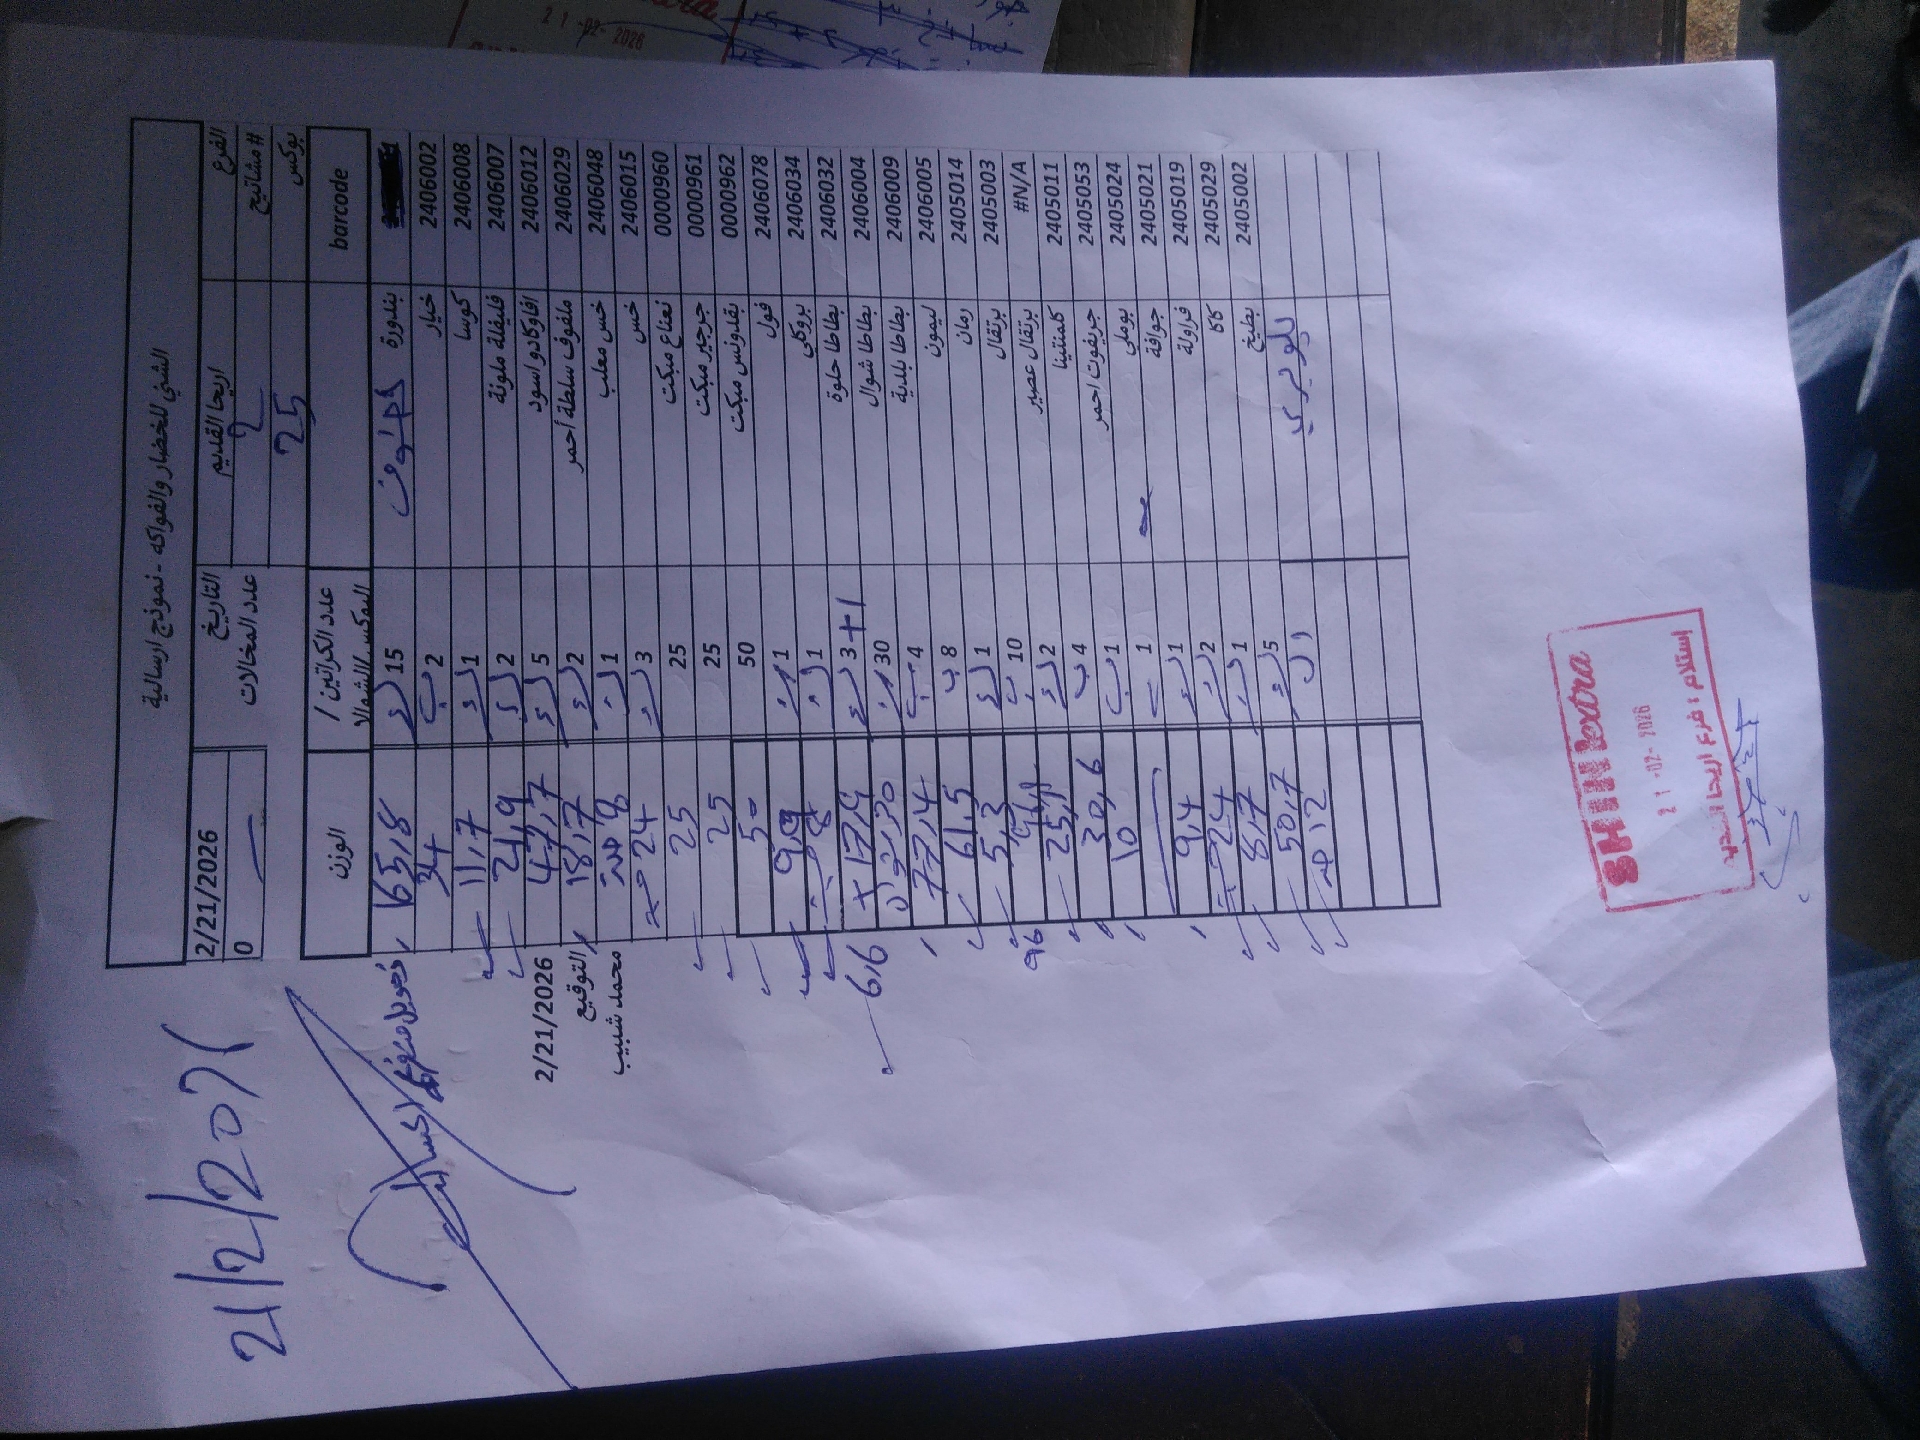 الشني للخضار والفواكه - نموذج ارسالية
الفرع اريحا القديم التاريخ 2/21/2026
# مشاتيح 2 عدد المخالات 0
بوكس 25
barcode عدد الكراتين / البوكس/الشوالا الوزن
بندورة 15 165,8
2406002 خيار 2 34
2406008 كوسا 1 11,7
2406007 فليفلة ملونة 2 21,9
2406012 افاوكادو اسود 5 47,7
2406029 ملفوف سلطة أحمر 2 18,7
2406048 خس معلب 1 8
2406015 خس 3 24
0000960 نعناع مبكت 25 25
0000961 جرجير مبكت 25 25
0000962 بقدونس مبكت 50 50
2406078 فول 1 9,9
2406034 بروكلي 1 8
2406032 بطاطا حلوة 3+1 17,9 6,6
2406004 بطاطا شوال 30 30
2406009 بطاطا بلدية 4 77,4
2406005 ليمون 8 61,5
2405014 رمان 1 5,3
2405003 برتقال 10 96
#N/A برتقال عصير 2 25,1
2405011 كلمنتينا 4 30,6
2405053 جريفوت احمر 1 10
2405024 بوملي 1
2405021 جوافة 1 9,4
2405019 فراولة 2 24
2405029 كاكا 1 8,7
2405002 بطيخ 5 50,7
بلوبري 12
2/21/2026
التوقيع
محمد شبيب
21/2/202
SHINI extra
21 -02- 2026
إستلام : فرع اريحا